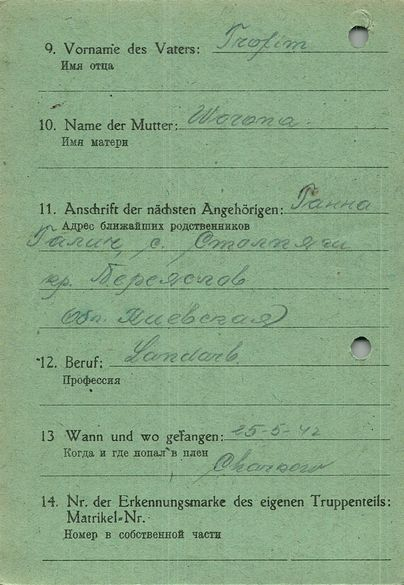 9. Vorname des Vaters: Trofim
Имя отца
10. Name der Mutter: Worona.
Имя матери
11. Anschrift der nächsten Angehörigen: Ганна
Адрес ближайших родственников
Галич, с. Столпяги
кр. Береяслов
Обл. Киевская
12. Beruf: Landarb.
Профессия
13 Wann und wo gefangen: 25-5-42
Когда и где попал в плен
Charkow
14. Nr. der Erkennungsmarke des eigenen Truppenteils:
Matrikel-Nr.
Номер в собственной части